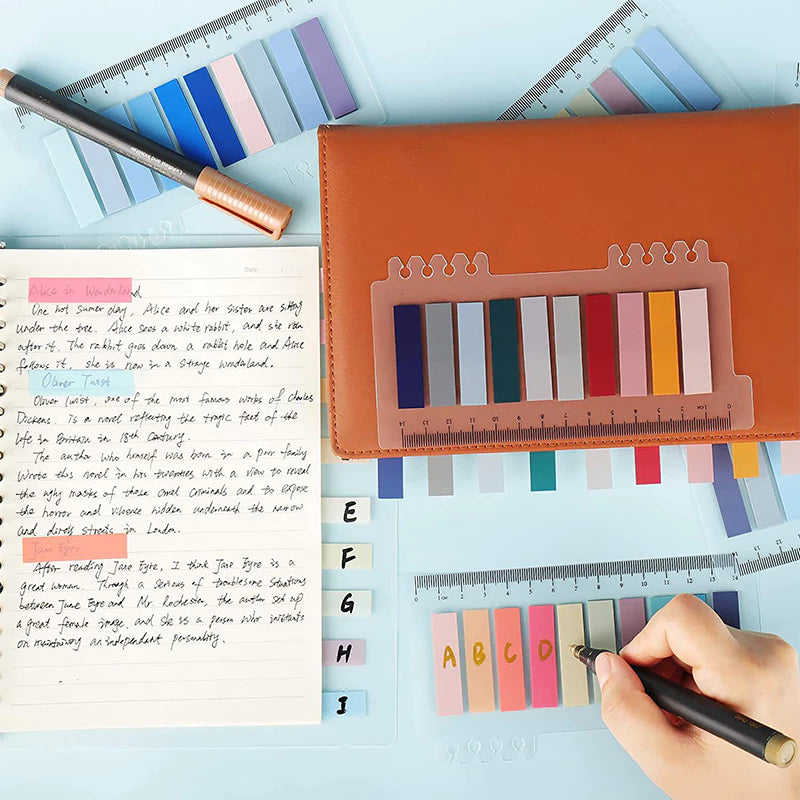 Date: /
Alice in Wonderland
One hot sumer day, Alice and her sister are sitting
under the tree. Alice sees a white rabbit, and she ran
after it. The rabbit goes down a rabbit hole and Alice
follows it, she is now in a strage wonderland.
Oliver Twist
Oliver Twist, one of the most famous works of Charles
Dickens. is a novel reflecting the tragic fact of the
life in Britain in 18th Century.
The author who himself was born in a poor family
wrote this novel in his twenties with a view to reveal
the ugly masks of those cruel criminals and to expose
the horror and violence hidden underneath the narrow
and dirty streets in London.
Jane Eyre
After reading Jane Eyre, I think Jane Eyre is a
great woman. Through a serious of troublesome situations
between Jane Eyre and Mr. Rochester, the author set up
a great female image, and she is a person who insistants
on maintaining an independant personality.
E
F
G
H
I
14 13 12 11 10 9 8 7 6 5 4 3 2 1CM 0
0 1CM 2 3 4 5 6 7 8 9 10 11 12 13 14
A B C D